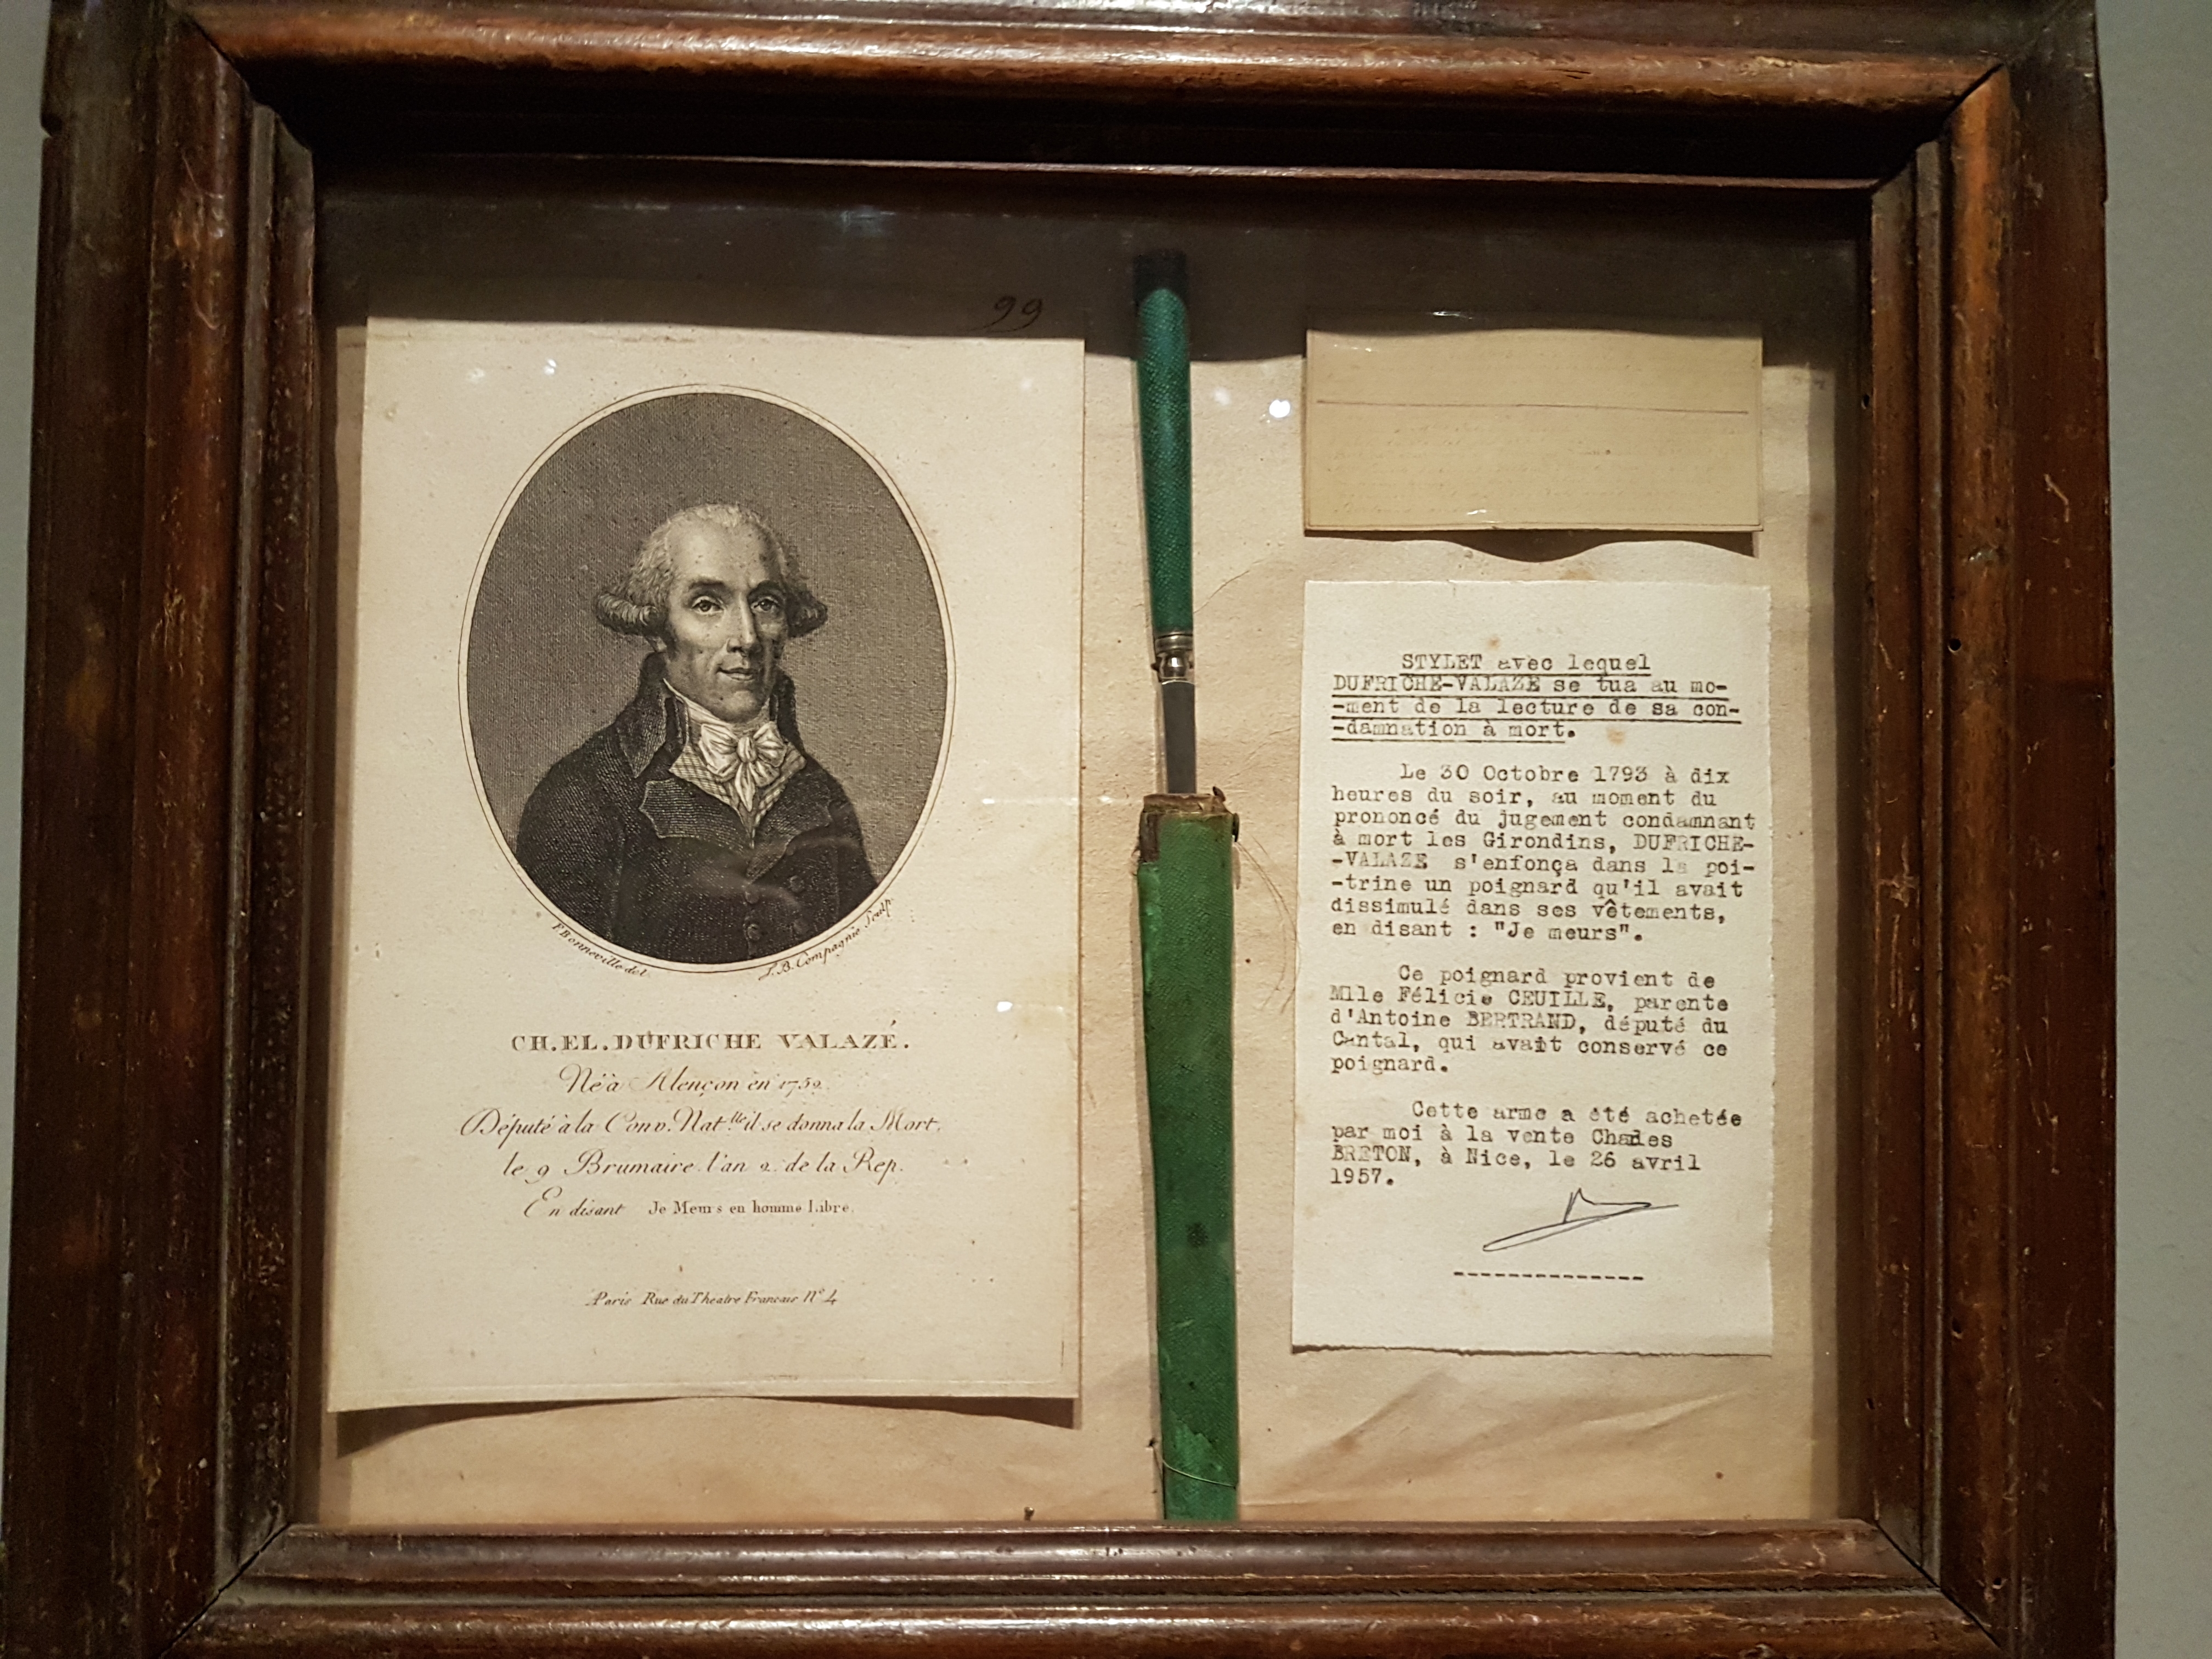 99
P Bonneville del.
J. B. Compagnie Sculp.
CH. EL. DUFRICHE VALAZÉ.
Né à Alençon en 1752
Député à la Conv. Nat.lle il se donna la Mort,
le 9 Brumaire l'an 2 de la Rep.
En disant Je Meurs en homme Libre.
Paris Rue du Theatre Francais N° 4
STYLET avec lequel
DUFRICHE-VALAZE se tua au mo-
-ment de la lecture de sa con-
-damnation à mort.
Le 30 Octobre 1793 à dix
heures du soir, au moment du
prononcé du jugement condamnant
à mort les Girondins, DUFRICHE-
-VALAZE s'enfonça dans la poi-
-trine un poignard qu'il avait
dissimulé dans ses vêtements,
en disant : "Je meurs".
Ce poignard provient de
Mlle Félicie CEUILLE, parente
d'Antoine BERTRAND, député du
Cantal, qui avait conservé ce
poignard.
Cette arme a été achetée
par moi à la vente Charles
BRETON, à Nice, le 26 avril
1957.